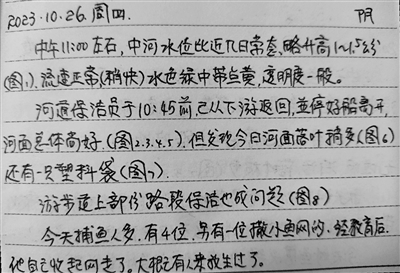 2023.10.26.周四. 阴
中午11:00左右,中河水位比近几日常态,略升高1~1.5公分
(图1).流速正常(稍快)水色绿中带点黄,透明度一般。
河道保洁员于10:45前已从下游返回,並停好船离开,
河面总体尚好.(图2.3.4.5).但发现今日河面落叶稍多(图6)
还有一只塑料袋(图7)
游步道上部份路段保洁也成问题(图8)
今天捕鱼人多,有4位.另有一位撒小鱼网的.经教育后.
他自己收起网走了。大概有人来放生过了。